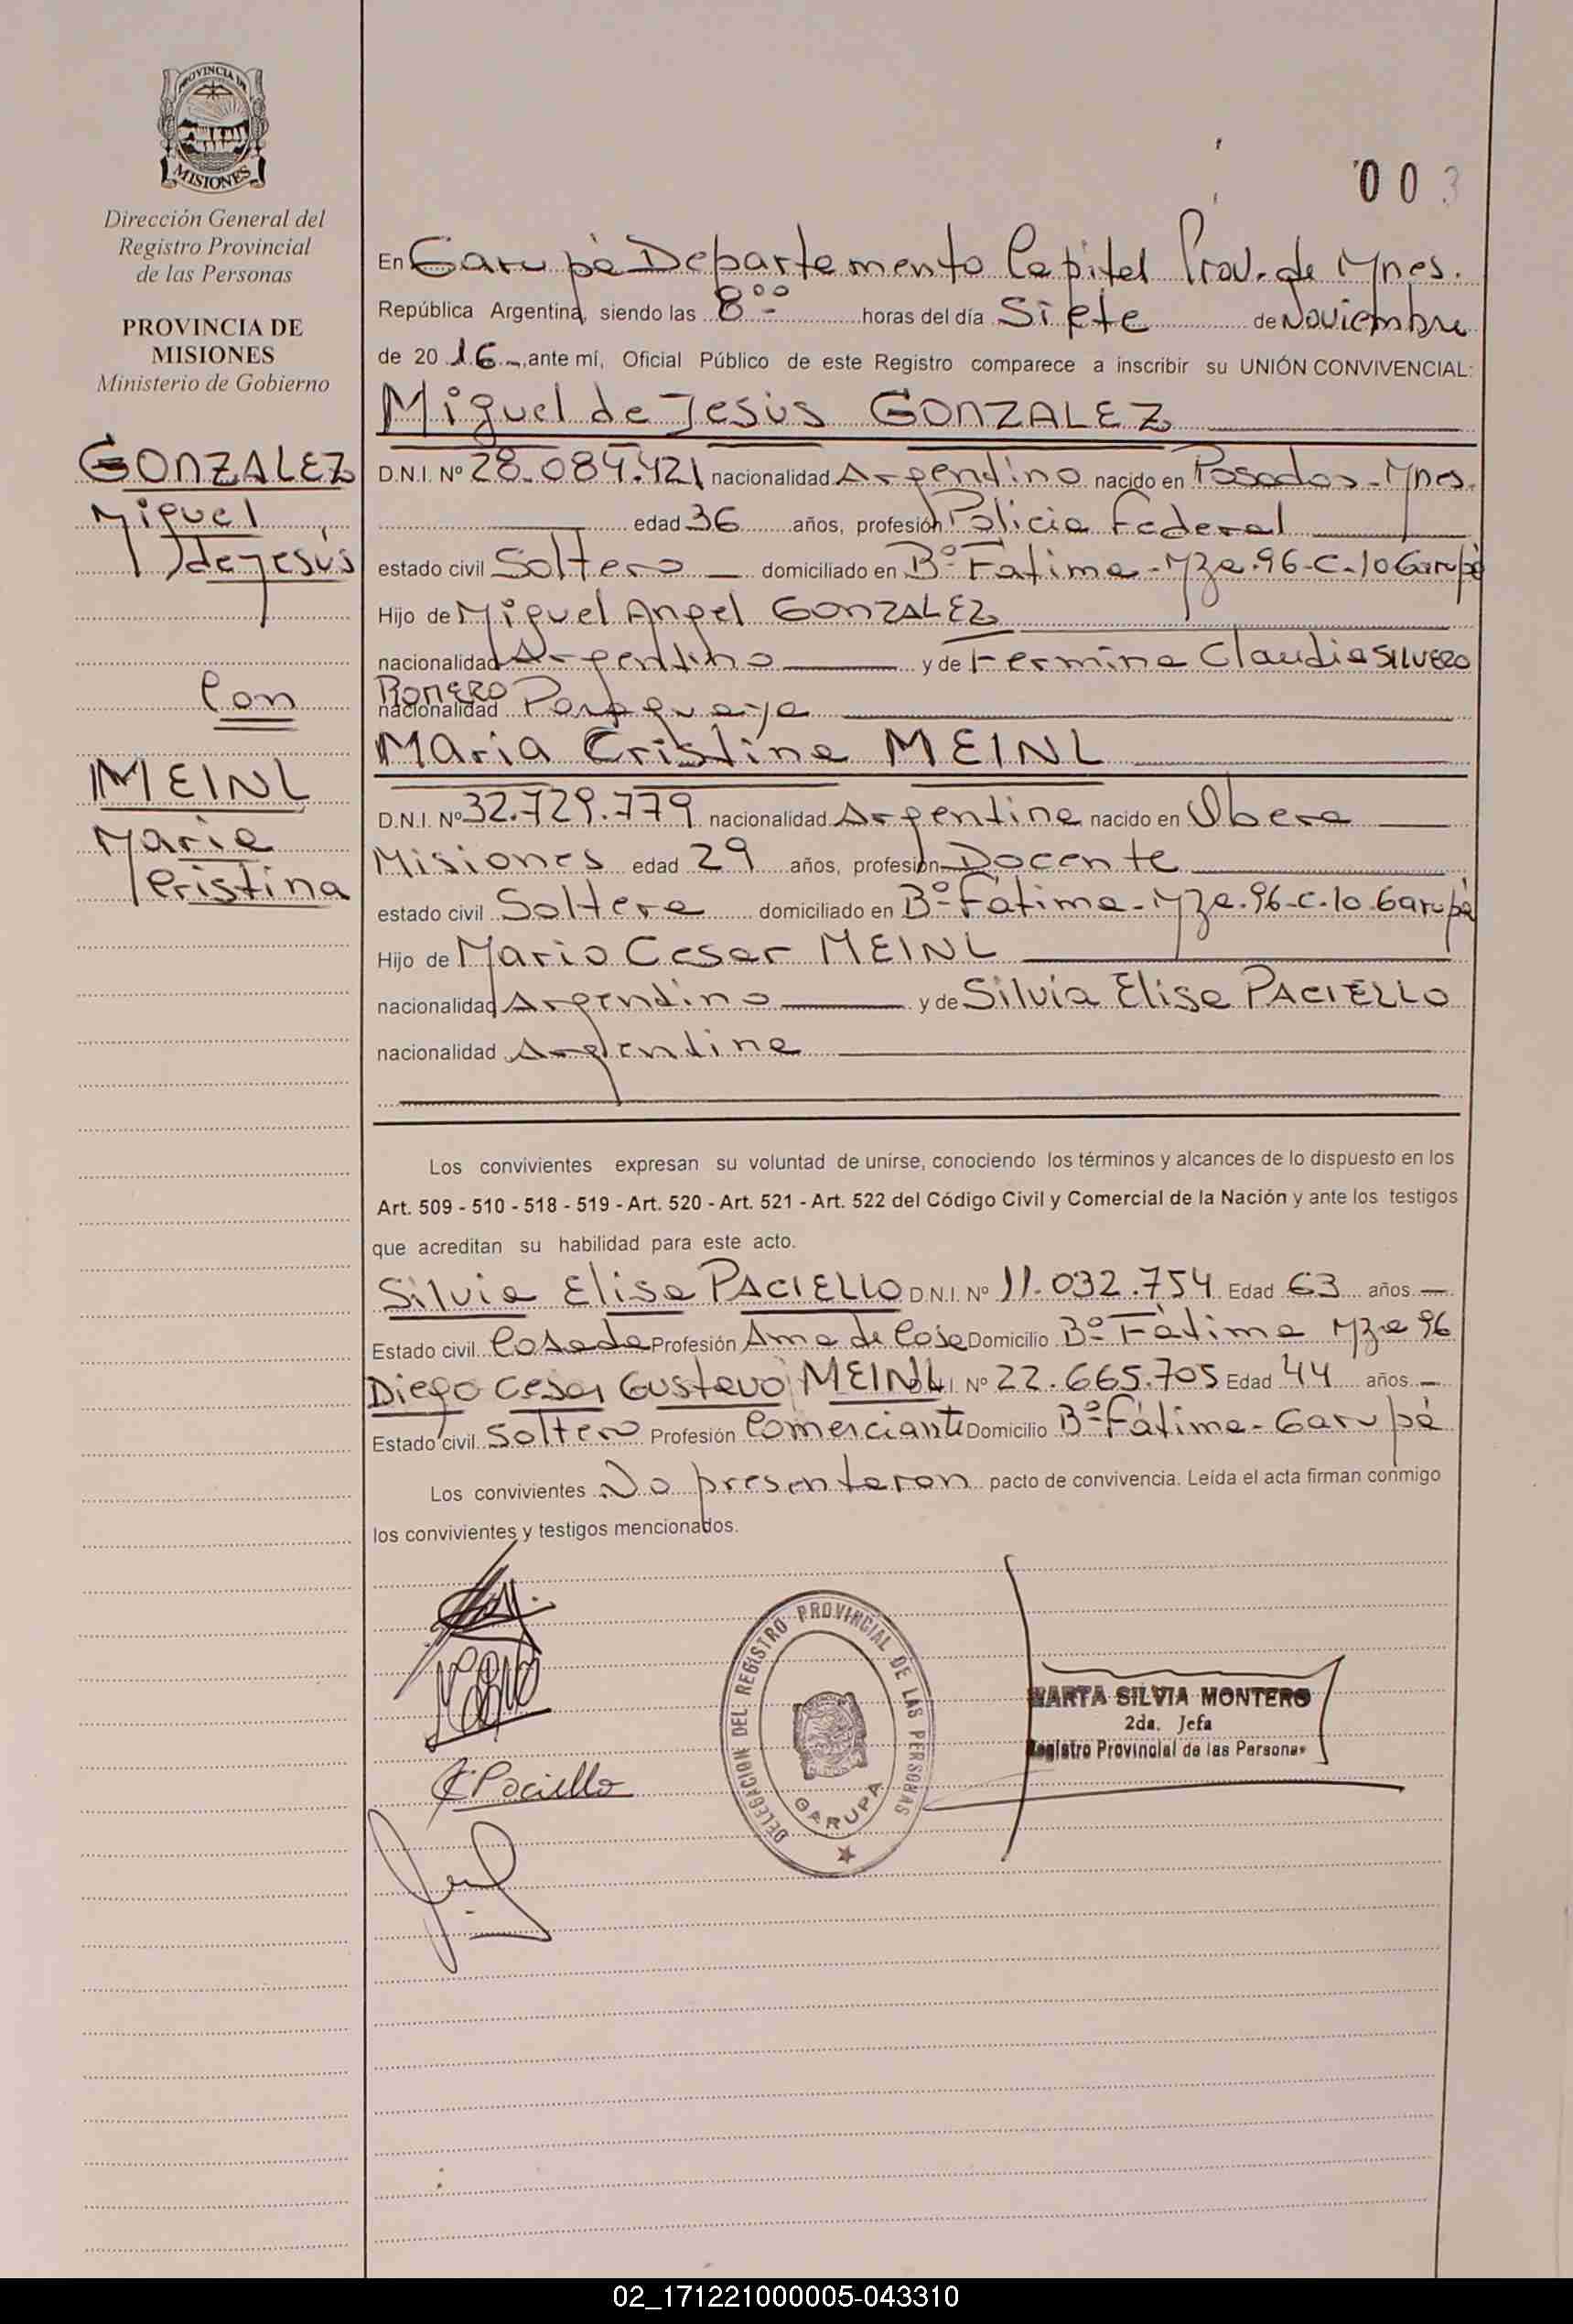 PROVINCIA DE
MISIONES
Dirección General del
Registro Provincial
de las Personas
PROVINCIA DE
MISIONES
Ministerio de Gobierno
GONZALEZ
Miguel
de Jesús
Con
MEINL
Maria
Cristina
003
En Garupá Departamento Capital Prov. de Mnes.
República Argentina, siendo las 8°° horas del día Siete de Noviembre
de 2016.-, ante mí, Oficial Público de este Registro comparece a inscribir su UNIÓN CONVIVENCIAL:
Miguel de Jesús GONZALEZ
D.N.I. Nº 28.084.421 nacionalidad Argentino nacido en Posadas-Mnes.
edad 36 años, profesión Policia Federal
estado civil Soltero domiciliado en Bº Fátima-Mza.96-C-10 Garupá
Hijo de Miguel Angel GONZALEZ
nacionalidad Argentino y de Fermina Claudia SILVERO
ROMERO
nacionalidad Paraguaya
Maria Cristina MEINL
D.N.I. Nº 32.729.779 nacionalidad Argentina nacido en Obera
Misiones edad 29 años, profesión Docente
estado civil Soltera domiciliado en Bº Fátima-Mza.96-C-10 Garupá
Hijo de Mario Cesar MEINL
nacionalidad Argentino y de Silvia Elisa PACIELLO
nacionalidad Argentina
Los convivientes expresan su voluntad de unirse, conociendo los términos y alcances de lo dispuesto en los
Art. 509 - 510 - 518 - 519 - Art. 520 - Art. 521 - Art. 522 del Código Civil y Comercial de la Nación y ante los testigos
que acreditan su habilidad para este acto.
Silvia Elisa PACIELLO D.N.I. Nº 11.032.754 Edad 63 años.-
Estado civil Casada Profesión Ama de Casa Domicilio Bº Fátima Mza 96
Diego Cesar Gustavo MEINL D.N.I. Nº 22.665.705 Edad 44 años.-
Estado civil Soltero Profesión Comerciante Domicilio Bº Fátima-Garupá
Los convivientes No presentaron pacto de convivencia. Leída el acta firman conmigo
los convivientes y testigos mencionados.
DELEGACION DEL REGISTRO PROVINCIAL DE LAS PERSONAS
GARUPA
MARTA SILVIA MONTERO
2da. Jefa
Registro Provincial de las Personas
02_171221000005-043310